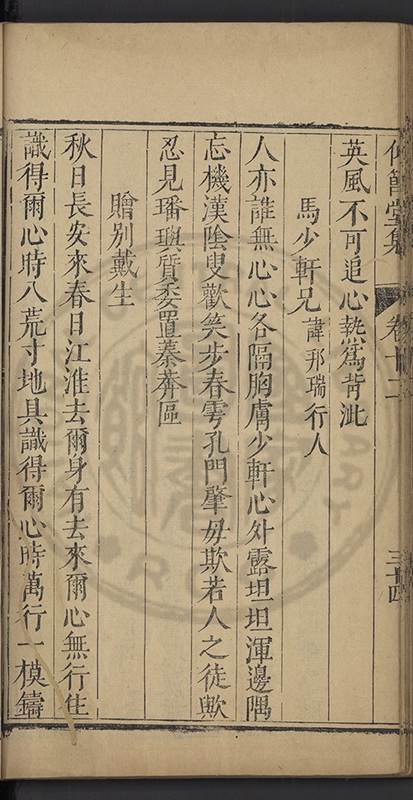 仰節堂集 卷十二 三十四
英風不可追心熱為背泚
馬少軒兄諱邦瑞行人
人亦誰無心心各隔胸膚少軒心外露坦坦渾邊隅
忘機漢陰叟歡笑步春雩孔門肇毋欺若人之徒歟
忍見璠璵質委置蓁莽區
贈別戴生
秋日長安來春日江淮去爾身有去來爾心無行住
識得爾心時八荒寸地具識得爾心時萬行一模鑄